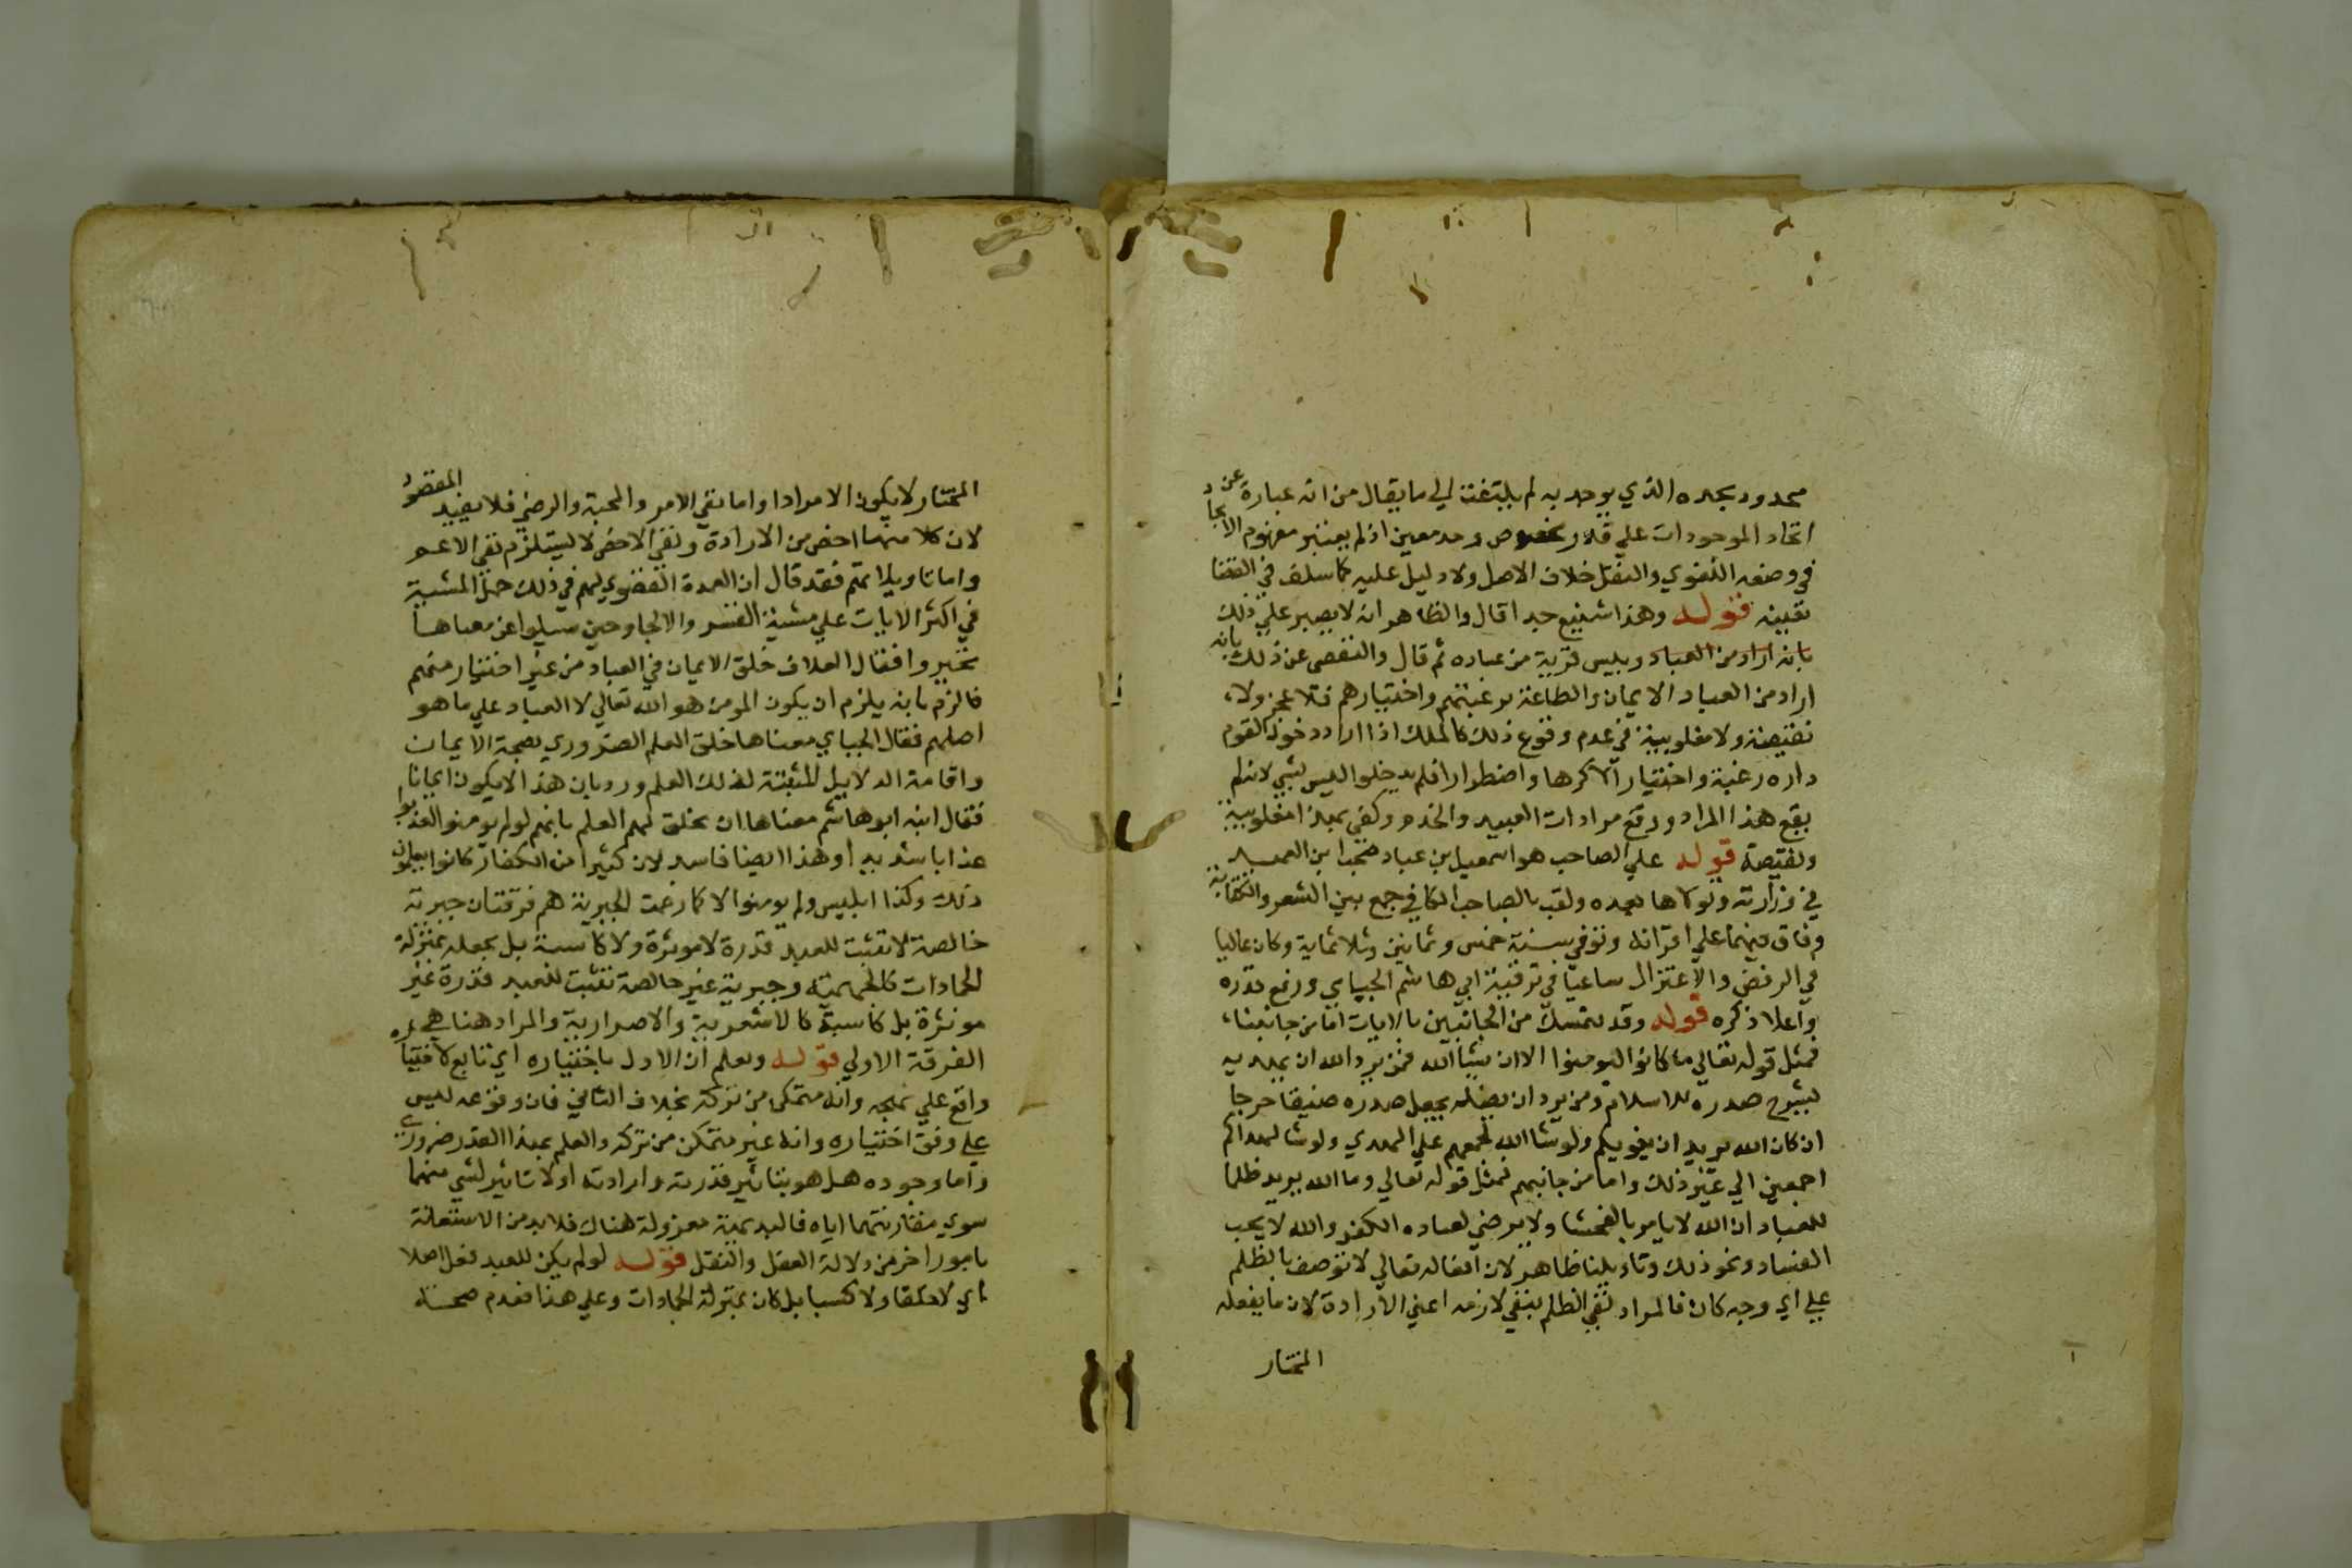 محدود بحده الذي يوجد به لم يلتفت الي ما يقال من انه عبارة عن
اتحاد الموجودات علي قدر مخصوص وحد معين اذ لم يعتبر مفهوم الايجاد
في وصفه اللغوي والنقل خلاف الاصل ولا دليل عليه كما سلف في القضا
بعينه قوله وهذا شنيع جدا قال والظاهر انه لا يصبر علي ذلك
بانه اراد من العباد وبليس قرية من عباده ثم قال والتفصي عن ذلك بانه
اراد من العباد الايمان والطاعة برغبتهم واختيارهم فلا عجز ولا
نقيصة ولا مغلوبية في عدم وقوع ذلك كالملك اذا اراد دخول القوم
داره رغبة واختيارا لا كرها واضطرارا فلم يدخلوا ليس بشي لانه لم
يقع هذا المراد ووقع مرادات العبيد والخدم وكفي بهذا مغلوبية
ونقيصة قوله علي الصاحب هو اسمعيل بن عباد صحب ابن العميد
في وزارته وتولاها بعده ولقب بالصاحب الكافي جمع بين الشعر والكتابة
وفاق فيهما علي اقرانه وتوفي سنة خمس وثمانين وثلاثماية وكان غاليا
في الرفض والاعتزال ساعيا في تربية ابي هاشم الجبايي ورفع قدره
واعلا ذكره قوله وقد تمسك من الجانبين بالايات اما من جانبنا
فمثل قوله تعالي ما كانوا ليومنوا الا ان يشا الله فمن يرد الله ان يهديه
يشرح صدره للاسلام ومن يرد ان يضله يجعل صدره ضيقا حرجا
ان كان الله يريد ان يغويكم ولو شا الله لجمعهم علي الهدي ولو شا لهداكم
اجمعين الي غير ذلك واما من جانبهم فمثل قوله تعالي وما الله يريد ظلما
للعباد ان الله لا يامر بالفحشا ولا يرضي لعباده الكفر والله لا يحب
الفساد ونحو ذلك وتاويلنا ظاهر لان افعاله تعالي لا توصف بالظلم
علي اي وجه كان فالمراد نفي الظلم بنفي لازمه اعني الارادة لان ما يفعله
المختار
المختار لا يكون الا مرادا واما نفي الامر والمحبة والرضي فلا يفيد المقصود
لان كلا منها اخص من الارادة ونفي الاخص لا يستلزم نفي الاعم
واما تاويلاتهم فقد قال ان العمدة القصوي لهم في ذلك حمل المشية
في اكثر الايات علي مشية القسر والالجا وحين سيلوا عن معناها
تحيروا فقال العلاف خلق الايمان في العباد من غير اختيار منهم
فالزم بانه يلزم ان يكون المومن هو الله تعالي لا العباد علي ما هو
اصلهم فقال الجباي معناها خلق العلم الضروري بصحة الايمان
واقامة الدلايل المثبتة لذلك العلم ورد بان هذا لا يكون ايمانا
فقال ابنه ابو هاشم معناها ان يخلق لهم العلم بانهم لو لم يومنوا لعذبوا
عذابا شديدا وهذا ايضا فاسد لان كثيرا من الكفار كانوا يعلمون
ذلك وكذا ابليس ولم يومنوا الا كما زعمت الجبرية هم فرقتان جبرية
خالصة لا تثبت للعبد قدرة لا موثرة ولا كاسبة بل يجعله بمنزلة
الجمادات كالجهمية وجبرية غير خالصة تثبت للعبد قدرة غير
موثرة بل كاسبة كالاشعرية والاضرارية والمراد هنا هي
الفرقة الاولي قوله ونعلم ان الاول باختياره اي تابع لاختياره
واقع علي نهجه وانه متمكن من تركه بخلاف الثاني فان وقوعه ليس
علي وفق اختياره وانه غير متمكن من تركه والعلم بهذا القدر ضروري
واما وجوده هل هو بتاثير قدرته وارادته او لا تاثير لشي منهما
سوي مقارنتهما اياه فالبديهة معزولة هناك فلا بد من الاستعانة
بامور اخر من دلالة العقل والنقل قوله لو لم يكن للعبد فعل اصلا
اي لا خلقا ولا كسبا بل كان بمنزلة الجمادات وعلي هذا فعدم صحة